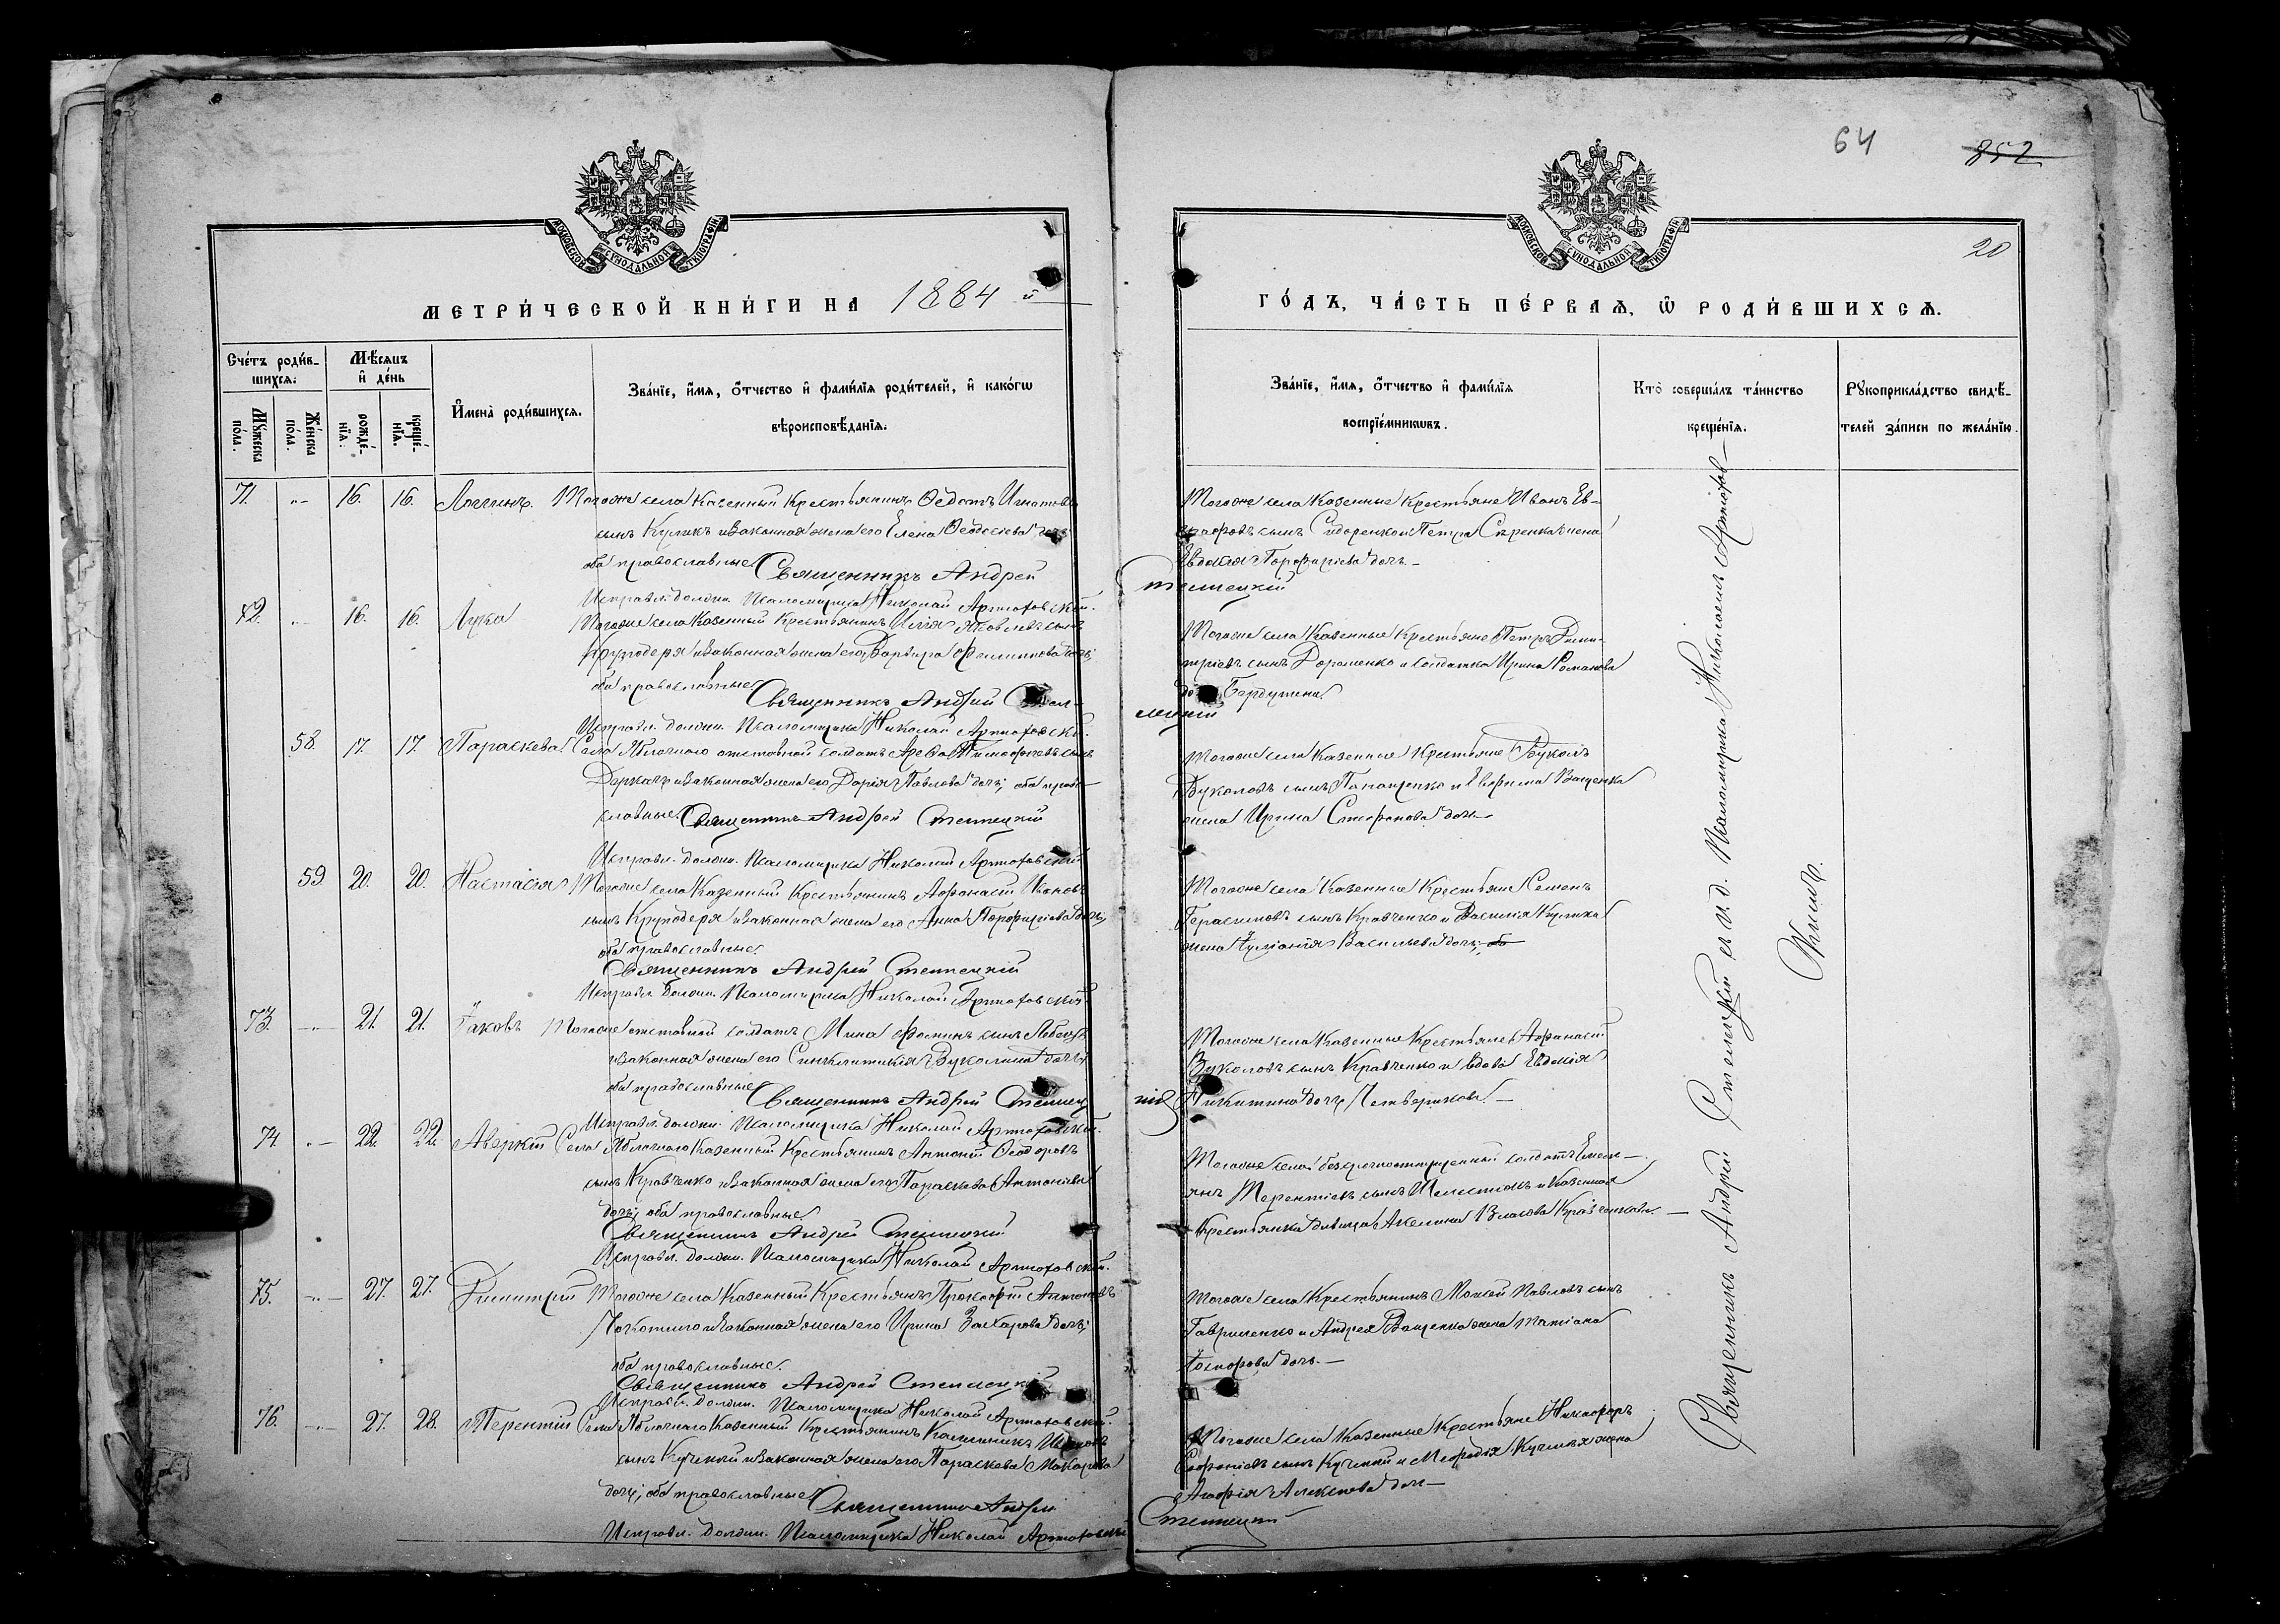 64
852
20
МОСКОВСКОЙ СѴНОДАЛЬНОЙ ТИПОГРАФІИ
МОСКОВСКОЙ СѴНОДАЛЬНОЙ ТИПОГРАФІИ
МЕТРИ́ЧЕСКОЙ КНИ́ГИ НА 1884 й
ГО́ДЪ, ЧА́СТЬ ПЕ́РВАѦ, Ѡ РОДИ́ВШИХСѦ.
Сче́тъ роди́в-
шихсѧ.
Мꙋ́жеска по́ла.
Же́нска по́ла.
Мѣ́сѧцъ
и҆ де́нь
рожде́-
нїѧ.
креще́-
нїѧ.
И҆мена̀ роди́вшихсѧ.
Зва́нїе, и҆́мѧ, ѻ҆́тчество и҆ фами́лїѧ роди́телей, и҆ како́гѡ
вѣроисповѣ́данїѧ.
Зва́нїе, и҆́мѧ, ѻ҆́тчество и҆ фами́лїѧ
воспрїе́мникѡвъ.
Кто̀ соверша́лъ та́инство
креще́нїѧ.
Рꙋкоприкла́дство свидѣ́-
телей за́писи по жела́нїю.
71. 16. 16. Логгинъ. Тогоже села Казенный Крестьянинъ Ѳедотъ Игнатовъ
сынъ Куликъ и законная жена его Елена Ѳеодосіева дочь
оба православные. Священникъ Андрей
Исправл. должн. Псаломщика Николай Артюховскій.
Тогоже села Казенные Крестьяне Иванъ Ев-
графовъ сынъ Сидоренко и Петра жена
Евдокія Порфиріева дочь.
72. 16. 16. Лука Тогоже села Казенный Крестьянинъ Илія Яковлевъ сынъ
Круподеря и законная жена его Варвара Филиппова дочь;
оба православные. Священникъ Андрей
Исправл. должн. Псаломщика Николай Артюховскій.
Тогоже села Казенные Крестьяне Петръ Дими-
тріевъ сынъ Дорошенко и солдатка Ирина Романова
58. 17. 17. Параскева Села Яблочного отставной солдатъ Тимофеевъ сынъ
Деркачъ и законная жена его Дарія Павлова дочь; оба право-
славные. Священникъ Андрей
Исправл. должн. Псаломщика Николай Артюховскій
Тогоже села Казенные Крестьяне Вуколъ
Вуколовъ сынъ и Ващенка
жена Ирина Стефанова дочь
59. 20. 20. Настасія Тогоже села Казенный Крестьянинъ Аѳанасій Ивановъ
сынъ Круподеря и законная жена его Анна Порфиріева дочь;
оба православные.
Священникъ Андрей
Исправл. должн. Псаломщика Николай Артюховскій
Тогоже села Казенные Крестьяне Семенъ
Герасимовъ сынъ Кравченко и Василія Кулика
жена Іуліанія Васильева дочь; оба
73. 21. 21. Іаковъ Тогоже отставной солдатъ Мина Фоминъ сынъ
и законная жена его Синклитикія Вуколина дочь
оба православные. Священникъ Андрей
Исправл. должн. Псаломщика Николай Артюховскій.
Тогоже села Казенные Крестьяне Аѳанасій
Вуколовъ сынъ Кравченко и вдова Евдокія
Никитина дочь Четверикова.
74. 22. 22. Аверкій Села Яблочного Казенный Крестьянинъ Антоній Ѳеодоровъ
сынъ Кравченко и законная жена его Параскева Антоніева
дочь; оба православные.
Священникъ Андрей
Исправл. должн. Псаломщика Николай Артюховскій.
Тогоже села безсрочноотпускный солдатъ Емел-
янъ Терентіевъ сынъ Шелестъ и Казенная
Крестьянка дѣвица Акелина Власова
75. 27. 27. Димитрій Тогоже села Казенный Крестьянинъ Прокофій Антоновъ
и законная жена его Ирина Захарова дочь;
оба православные.
Священникъ Андрей
Исправл. должн. Псаломщика Николай Артюховскій.
Тогоже села Крестьянинъ Моисей Павловъ сынъ
Гавриленко и Андрея Ващенка жена Татіана
дочь.
76. 27. 28. Терентій Села Яблочного Казенный Крестьянинъ Каллиникъ Ивановъ
сынъ и законная жена его Параскева Макарова
дочь; оба православные. Священникъ Андрей
Исправл. должн. Псаломщика Николай Артюховскій
Тогоже села Казенные Крестьяне Никифоръ
Софроніевъ сынъ и Меѳодія жена
Агафія Алексіева дочь
Священникъ Андрей съ и. д. Псаломщика Николаемъ Артюхов-
скимъ.